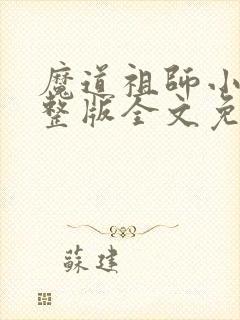 魔道祖師小
整版全文免
蘇建